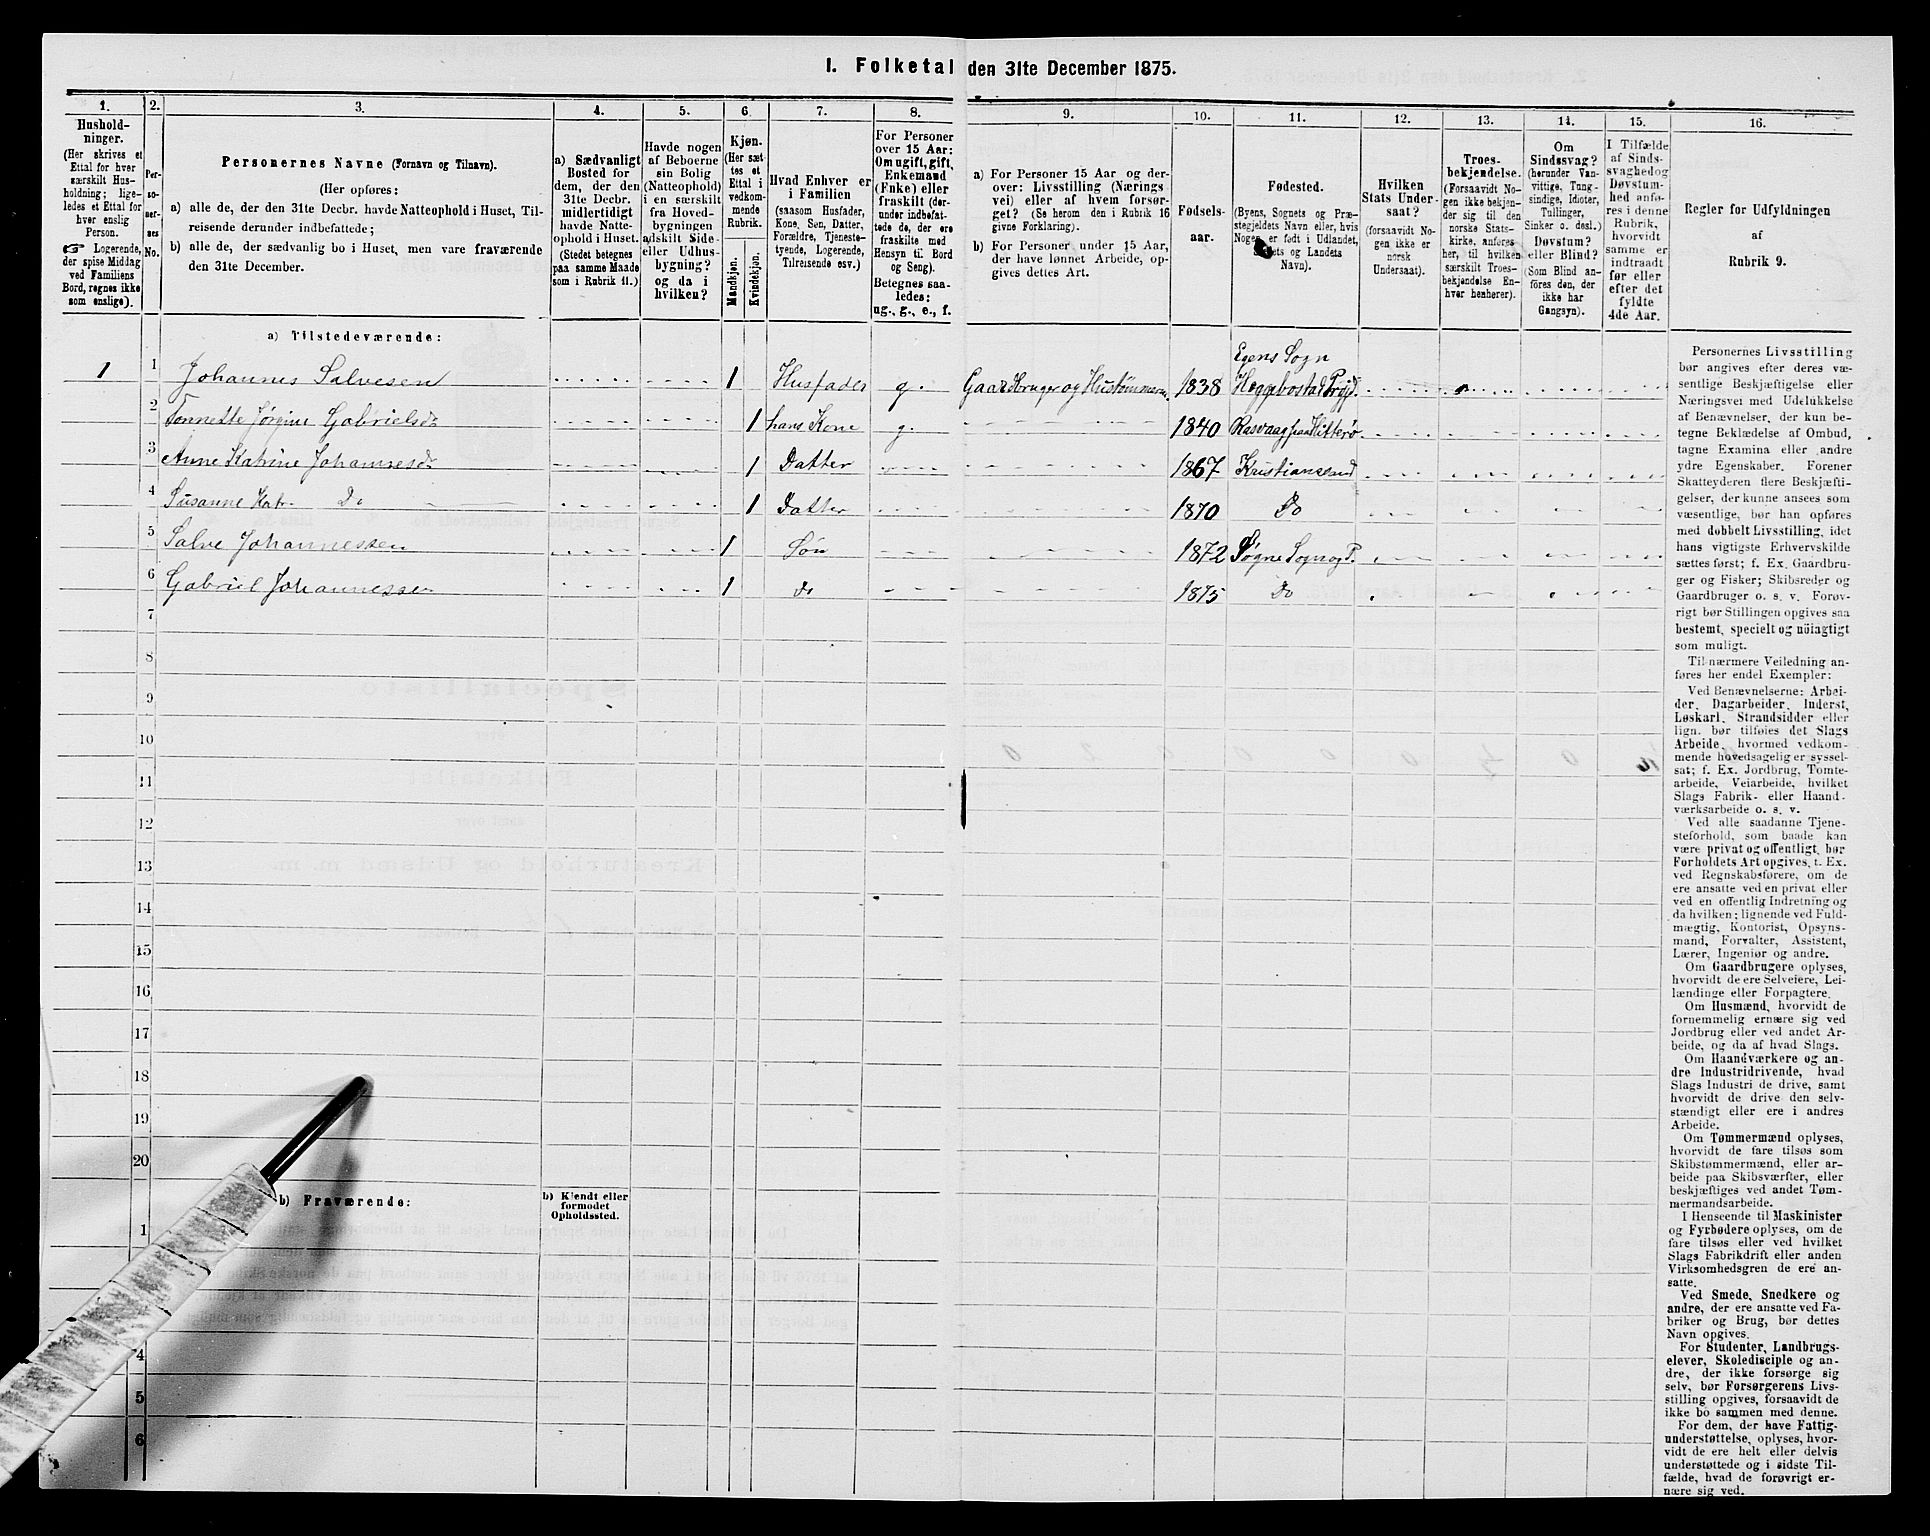 I. Folketal den 31te December 1875.
1.
Hushold-
ninger.
(Her skrives et
Ettal for hver
særskilt Hus-
holdning; lige-
ledes et Ettal for
hver enslig
Person.
☞ Logerende,
der spise Middag
ved Familiens
Bord, regnes ikke
som enslige).
2.
Per-
so-
ner-
nes
No.
3.
Personernes Navne (Fornavn og Tilnavn).
(Her opføres:
a) alle de, der den 31te Decbr. havde Natteophold i Huset, Til-
reisende derunder indbefattede;
b) alle de, der sædvanlig bo i Huset, men vare fraværende
den 31te December.
4.
a) Sædvanligt
Bosted for
dem, der den
31te Decbr.
midlertidigt
havde Natte-
ophold i Huset.
(Stedet betegnes
paa samme Maade
som i Rubrik 11.)
5.
Havde nogen
af Beboerne
sin Bolig
(Natteophold)
i en særskilt
fra Hoved-
bygningen
adskilt Side-
eller Udhus-
bygning?
og da i
hvilken?
6.
Kjøn.
(Her sæt-
tes et
Ettal i
vedkom-
mende
Rubrik.
Mandkjøn.
Kvindekjøn.
7.
Hvad Enhver er
i Familien
(saasom Husfader,
Kone, Søn, Datter,
Forældre, Tjeneste-
tyende, Logerende,
Tilreisende osv.)
8.
For Personer
over 15 Aar:
Om ugift, gift,
Enkemand
(Enke) eller
fraskilt (der-
under indbefat-
tede de, der ere
fraskilte med
Hensyn til Bord
og Seng).
Betegnes saa-
ledes:
ug., g., e., f.
9.
a) For Personer 15 Aar og der-
over: Livsstilling (Nærings
vei) eller af hvem forsør-
get? (Se herom den i Rubrik 16
givne Forklaring).
b) For Personer under 15 Aar,
der have lønnet Arbeide, op-
gives dettes Art.
10.
Fødsels-
aar.
11.
Fødested.
(Byens, Sognets og Præ-
stegjeldets Navn eller, hvis
Nogen er født i Udlandet,
Stedets og Landets
Navn).
12.
Hvilken
Stats Under-
saat?
(forsaavidt No-
gen ikke er
norsk
Undersaat).
13.
Troes-
bekjendelse.
(Forsaavidt No-
gen ikke bekjen-
der sig til den
norske Stats-
kirke, anføres
her, til hvilken
særskilt Troes-
bekjendelse En-
hver henhører).
14.
Om
Sindssvag?
(herunder Van-
vittige, Tung-
sindige, Idioter,
Tullinger,
Sinker o. desl.)
Døvstum?
eller Blind?
(Som Blind an-
föres den, der
ikke har
Gangsyn).
15.
I Tilfælde
af Sinds-
svaghed og
Døvstum-
hed anfø-
res i denne
Rubrik,
hvorvidt
samme er
indtraadt
før eller
efter det
fyldte
4de Aar.
16.
Regler for Udfyldningen
af
Rubrik 9.
a) Tilstedeværende:
1 1 Johannes Salvesen 1 Husfader g. Gaardbruger og Hustømmerm. 1838 Egens Sogn
Heggebostad Prgjd.
2 Tonnette Jørgine Gabrielsdr 1 hans Kone g. 1840 Rasvaag paa Hitterø
3 Anne Katrine Johannesdr 1 Datter 1867 Kristianssand
4 Susanne Katr. Do 1 Datter 1870 Do
5 Salve Johannessen 1 Søn 1872 Søgne Sogn og P.
6 Gabriel Johannessen 1 do 1875 Do
7
8
9
10
11
12
13
14
15
16
17
18
19
20
b) Fraværende:
b) Kjendt eller
formodet
Opholdssted.
1
4
5
6
Personernes Livsstilling
bør angives efter deres væ-
sentlige Beskjæftigelse eller
Næringsvei med Udelukkelse
af Benævnelser, der kun be-
tegne Beklædelse af Ombud,
tagne Examina eller andre
ydre Egenskaber. Forener
Skatteyderen flere Beskjæfti-
gelser, der kunne ansees som
væsentlige, bør han opføres
med dobbelt Livsstilling, idet
hans vigtigste Erhvervskilde
sættes først; f. Ex. Gaardbru-
ger og Fisker; Skibsreder og
Gaardbruger o. s. v. Forøv-
rigt bør Stillingen opgives saa
bestemt, specielt og nöiagtigt
som muligt.
Til nærmere Veiledning an-
føres her endel Exempler:
Ved Benævnelserne: Arbei-
der, Dagarbeider, Inderst,
Løskarl, Strandsidder eller
lign. bør tilføies det Slags
Arbeide, hvormed vedkom-
mende hovedsagelig er syssel-
sat; f. Ex. Jordbrug, Tomte-
arbeide, Veiarbeide, hvilket
Slags Fabrik- eller Haand-
værksarbeide o. s. v.
Ved alle saadanne Tjene-
steforhold, som baade kan
være privat og offentligt, bør
Forholdets Art opgives, t. Ex.
ved Regnskabsførere, om de
ere ansatte ved en privat eller
ved en offentlig Indretning og
da hvilken; lignende ved Fuld-
mægtig, Kontorist, Opsyns-
mand, Forvalter, Assistent,
Lærer, Ingeniør og andre.
Om Gaardbrugere oplyses,
hvorvidt de ere Selveiere, Lei-
lændinge eller Forpagtere.
Om Husmænd, hvorvidt de
fornemmelig ernære sig ved
Jordbrug eller ved andet Ar-
beide, og da af hvad Slags.
Om Haandværkere og an-
dre Industridrivende, hvad
Slags Industri de drive, samt
hvorvidt de drive den selv-
stændigt eller ere i andres
Arbeide.
Om Tømmermænd oplyses,
hvorvidt de fare tilsøs som
Skibstømmermænd, eller ar-
beide paa Skibsværfter, eller
beskjæftiges ved andet Tøm-
mermandsarbeide.
I Henseende til Maskinister
og Fyrbødere oplyses, om de
fare tilsøs eller ved hvilket
Slags Fabrikdrift eller anden
Virksomhedsgren de ere an-
satte.
Ved Smede, Snedkere og
andre, der ere ansatte ved Fa-
briker og Brug, bør dettes
Navn opgives.
For Studenter, Landbrugs-
elever, Skoledisciple og an-
dre, der ikke forsørge sig
selv, bør Forsørgerens Livs-
stilling opgives, forsaavidt de
ikke bo sammen med denne.
For dem, der have Fattig-
understøttelse, oplyses, hvor-
vidt de ere helt eller delvis
understøttede og i sidste Til-
fælde, hvad de forøvrigt er-
nære sig ved.